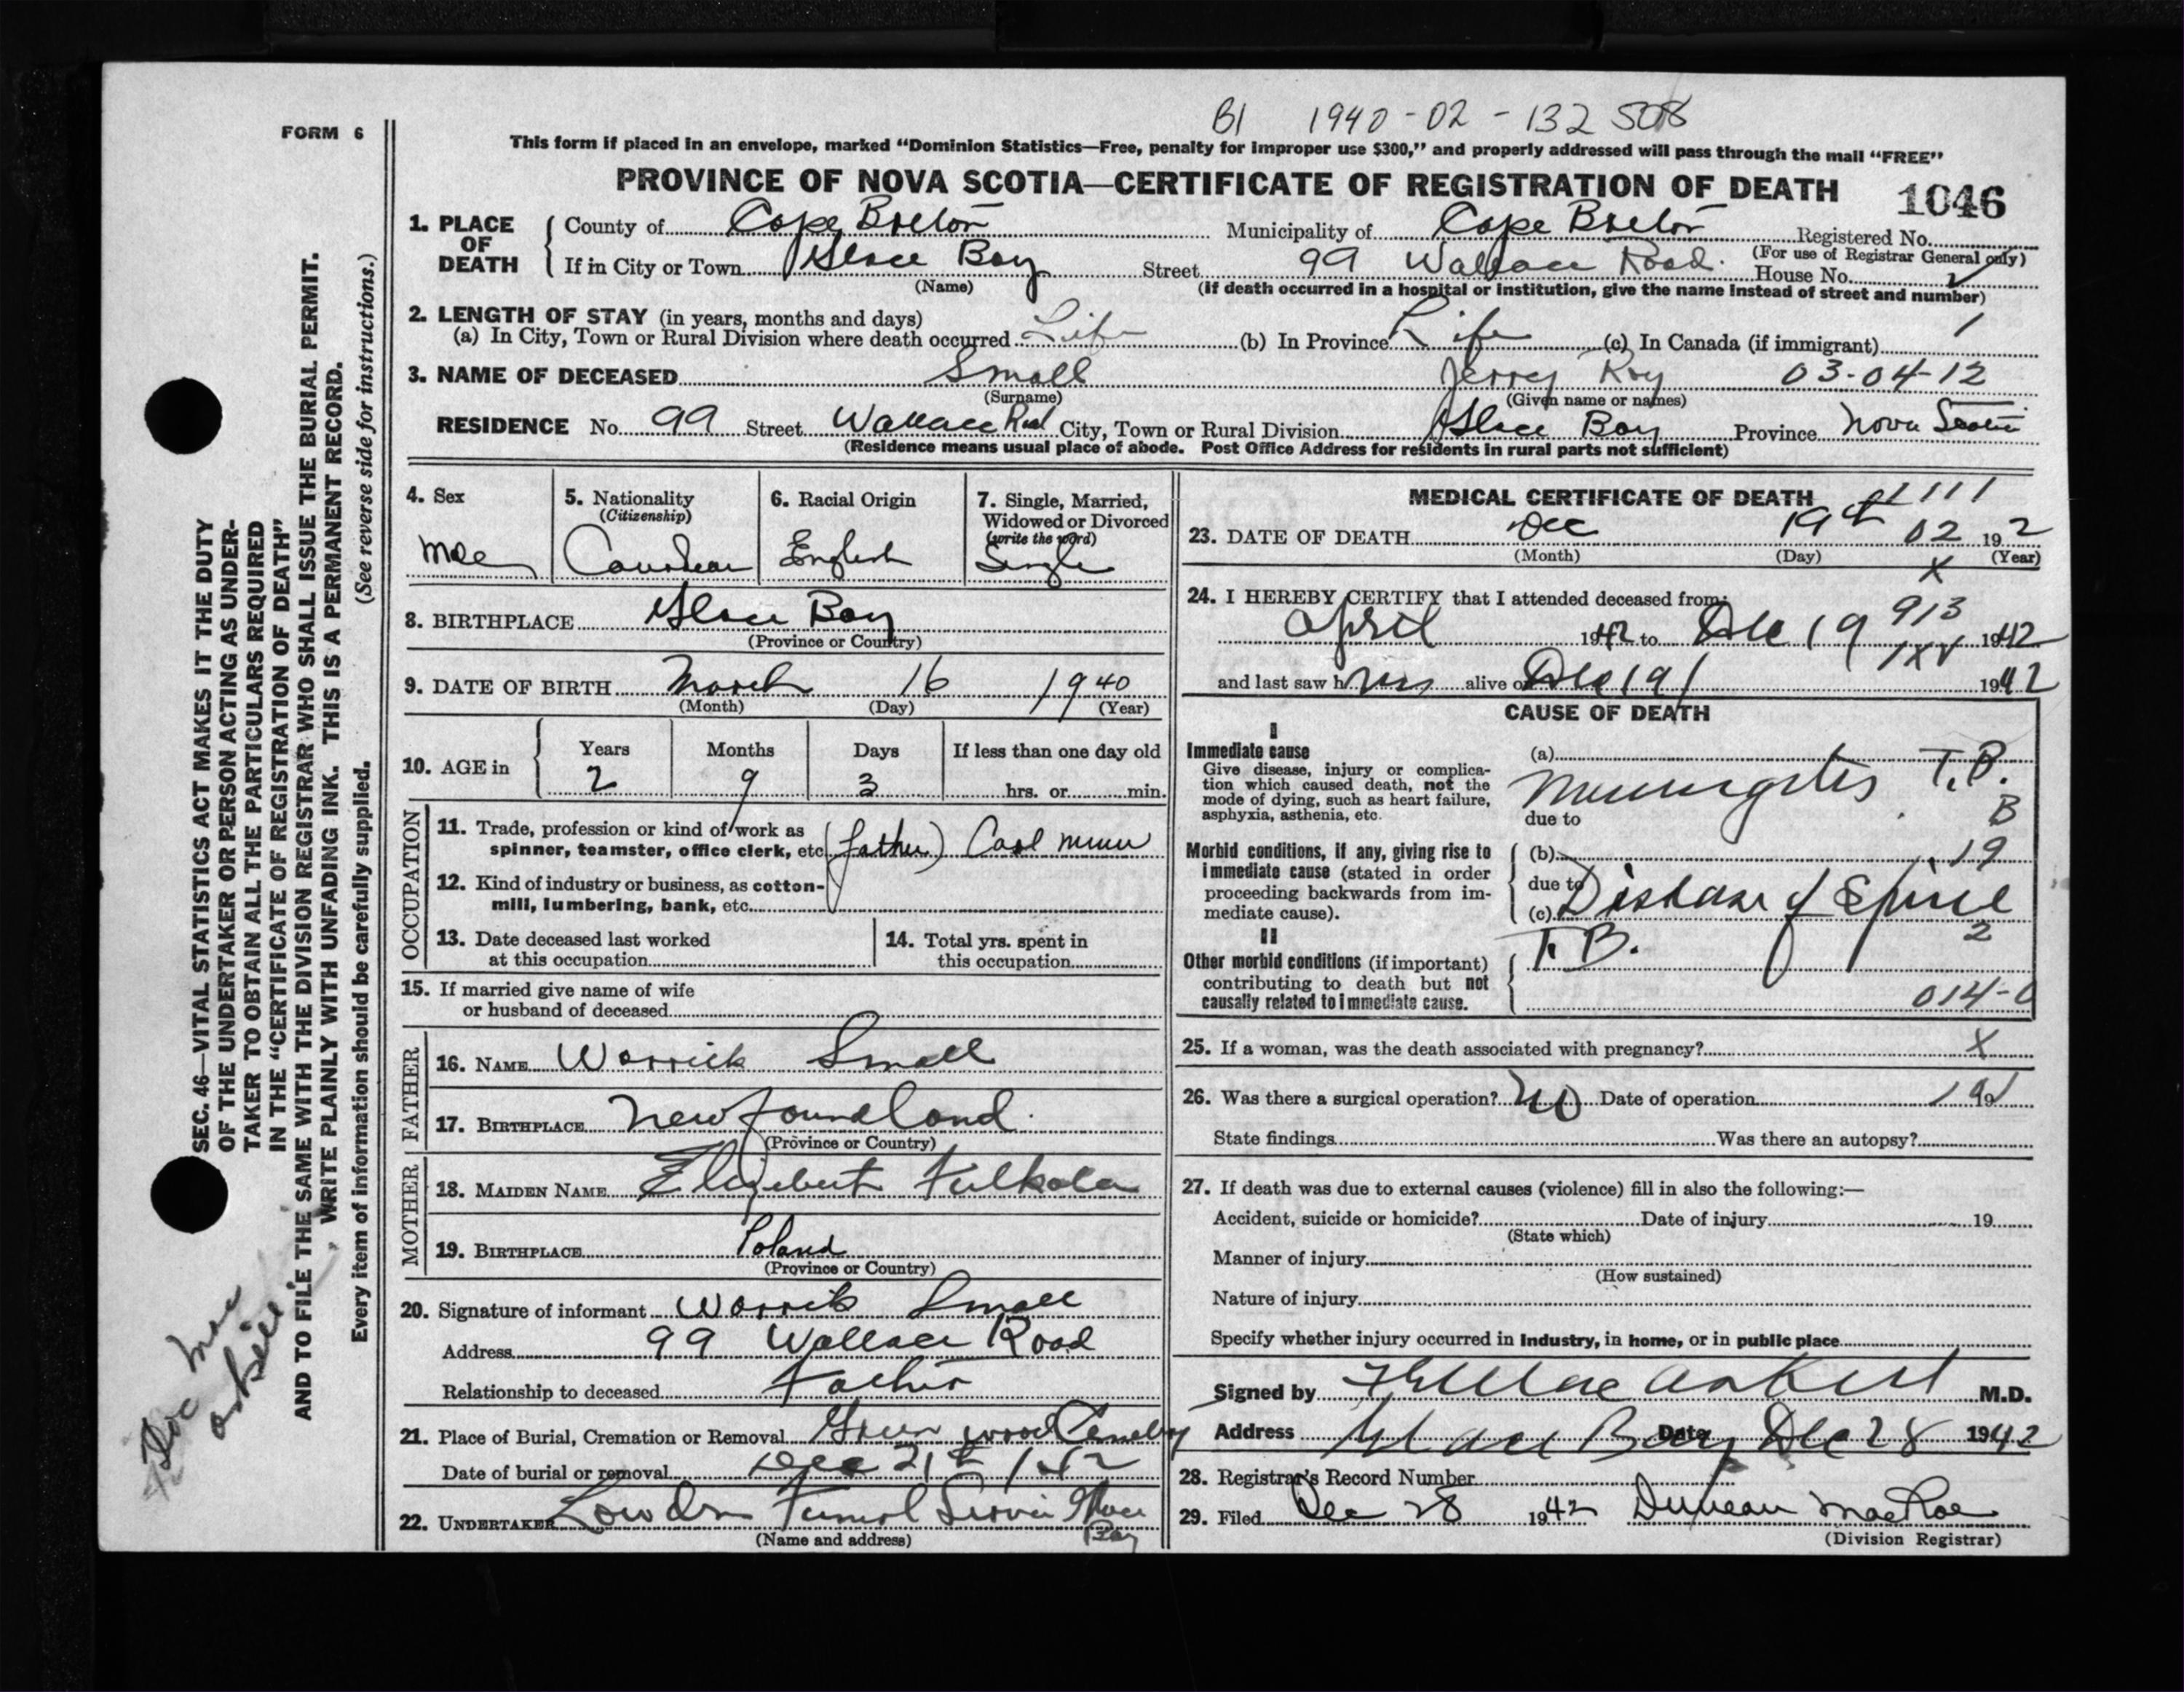 B1 1940-02-132508
FORM 6
This form if placed in an envelope, marked “Dominion Statistics—Free, penalty for improper use $300,” and properly addressed will pass through the mail “FREE”
PROVINCE OF NOVA SCOTIA—CERTIFICATE OF REGISTRATION OF DEATH 1046
1. PLACE OF DEATH
County of Cape Breton Municipality of Cape Breton Registered No.
(For use of Registrar General only)
If in City or Town Glace Bay Street 99 Wallace Road. House No.
(Name) (If death occurred in a hospital or institution, give the name instead of street and number)
2. LENGTH OF STAY (in years, months and days)
(a) In City, Town or Rural Division where death occurred Life (b) In Province Life (c) In Canada (if immigrant)
3. NAME OF DECEASED Small Jerry Roy 03-04-12
(Surname) (Given name or names)
RESIDENCE No. 99 Street Wallace Rd City, Town or Rural Division Glace Bay Province Nova Scotia
(Residence means usual place of abode. Post Office Address for residents in rural parts not sufficient)
4. Sex
Male
5. Nationality
(Citizenship)
Canadian
6. Racial Origin
English
7. Single, Married,
Widowed or Divorced
(write the word)
Single
8. BIRTHPLACE Glace Bay
(Province or Country)
9. DATE OF BIRTH March 16 1940
(Month) (Day) (Year)
10. AGE in Years Months Days If less than one day old
2 9 3 hrs. or min.
OCCUPATION
11. Trade, profession or kind of work as
spinner, teamster, office clerk, etc. (father) Coal miner
12. Kind of industry or business, as cotton-
mill, lumbering, bank, etc.
13. Date deceased last worked
at this occupation
14. Total yrs. spent in
this occupation
15. If married give name of wife
or husband of deceased
FATHER
16. NAME Warrick Small
17. BIRTHPLACE Newfoundland.
(Province or Country)
MOTHER
18. MAIDEN NAME Elizebeth
19. BIRTHPLACE Poland
(Province or Country)
20. Signature of informant Warrick Small
Address 99 Wallace Road
Relationship to deceased Father
21. Place of Burial, Cremation or Removal Green wood Cemetery
Date of burial or removal Dec 21st 1942
22. UNDERTAKER Funeral Service Glace Bay
(Name and address)
MEDICAL CERTIFICATE OF DEATH 1111
23. DATE OF DEATH Dec 19th 02 192
(Month) (Day) (Year)
X
24. I HEREBY CERTIFY that I attended deceased from:
913
April 1942 to Dec 19 1942
and last saw him alive on Dec 19 1942
CAUSE OF DEATH
I
Immediate cause
Give disease, injury or complica-
tion which caused death, not the
mode of dying, such as heart failure,
asphyxia, asthenia, etc.
(a)
Meningitis T.B.
B
due to
Morbid conditions, if any, giving rise to
immediate cause (stated in order
proceeding backwards from im-
mediate cause).
(b) 19
due to
(c) Disease of Spine
2
II
Other morbid conditions (if important)
contributing to death but not
causally related to immediate cause.
T.B.
014-0
25. If a woman, was the death associated with pregnancy? X
26. Was there a surgical operation? No Date of operation 19
State findings Was there an autopsy?
27. If death was due to external causes (violence) fill in also the following:—
Accident, suicide or homicide? Date of injury 19
(State which)
Manner of injury
(How sustained)
Nature of injury
Specify whether injury occurred in Industry, in home, or in public place
Signed by MacAskill M.D.
Address Glace Bay Date Dec 28 1942
28. Registrar's Record Number
29. Filed Dec 28 1942 Duncan MacRae
(Division Registrar)
SEC. 46—VITAL STATISTICS ACT MAKES IT THE DUTY
OF THE UNDERTAKER OR PERSON ACTING AS UNDER-
TAKER TO OBTAIN ALL THE PARTICULARS REQUIRED
IN THE “CERTIFICATE OF REGISTRATION OF DEATH”
AND TO FILE THE SAME WITH THE DIVISION REGISTRAR WHO SHALL ISSUE THE BURIAL PERMIT.
WRITE PLAINLY WITH UNFADING INK. THIS IS A PERMANENT RECORD.
Every item of information should be carefully supplied. (See reverse side for instructions.)
Doc Mac
askill